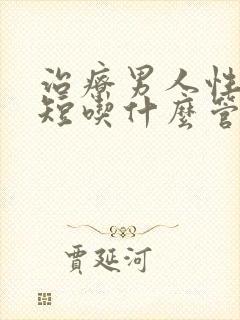 治療男人性
短喫什麼管
賈延河